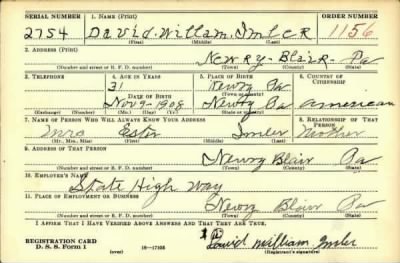 SERIAL NUMBER 1. NAME (Print) ORDER NUMBER
2754 David. William. Imler 1156
(First) (Middle) (Last)
2. ADDRESS (Print)
Newry - Blair - Pa
(Number and street or R. F. D. number) (Town) (County) (State)
3. TELEPHONE 4. AGE IN YEARS 5. PLACE OF BIRTH 6. COUNTRY OF CITIZENSHIP
31 Newry Pa
DATE OF BIRTH (Town or county)
Nov 9-1908 Newry Pa American
(Exchange) (Number) (Mo.) (Day) (Yr.) (State or country)
7. NAME OF PERSON WHO WILL ALWAYS KNOW YOUR ADDRESS 8. RELATIONSHIP OF THAT PERSON
Mrs Ester Imler Mother
(Mr., Mrs., Miss) (First) (Middle) (Last)
9. ADDRESS OF THAT PERSON
Newry Blair Pa
(Number and street or R. F. D. number) (Town) (County) (State)
10. EMPLOYER'S NAME
State High Way
11. PLACE OF EMPLOYMENT OR BUSINESS
Newry Blair Pa
(Number and street or R. F. D. number) (Town) (County) (State)
I AFFIRM THAT I HAVE VERIFIED ABOVE ANSWERS AND THAT THEY ARE TRUE.
REGISTRATION CARD David William Imler
D. S. S. Form 1 (over) 16—17105 (Registrant's signature)